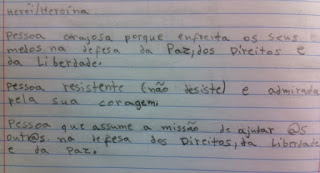 Herói/Heroína
Pessoa corajosa porque enfrenta os seus
medos na defesa da Paz, dos Direitos e
da Liberdade.
Pessoa resistente (não desiste) e admirada
pela sua coragem.
Pessoa que assume a missão de ajudar @s
outr@s na defesa dos Direitos, da Liberdade
e da Paz.